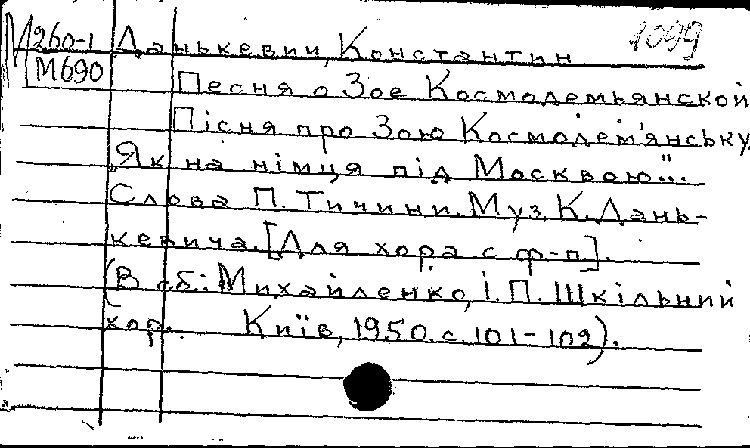 М260-1 Данькевич, Константин 1099
М690
Песня о Зое Космодемьянской
Пісня про Зою Космодем'янську
„Як на німця під Москвою"...
Слова П. Тичини. Муз. К. Дань-
кевича. [Для хора с ф-п].
(В сб.: Михайленко, І.П. Шкільний
хор. Київ, 1950. с. 101-102).